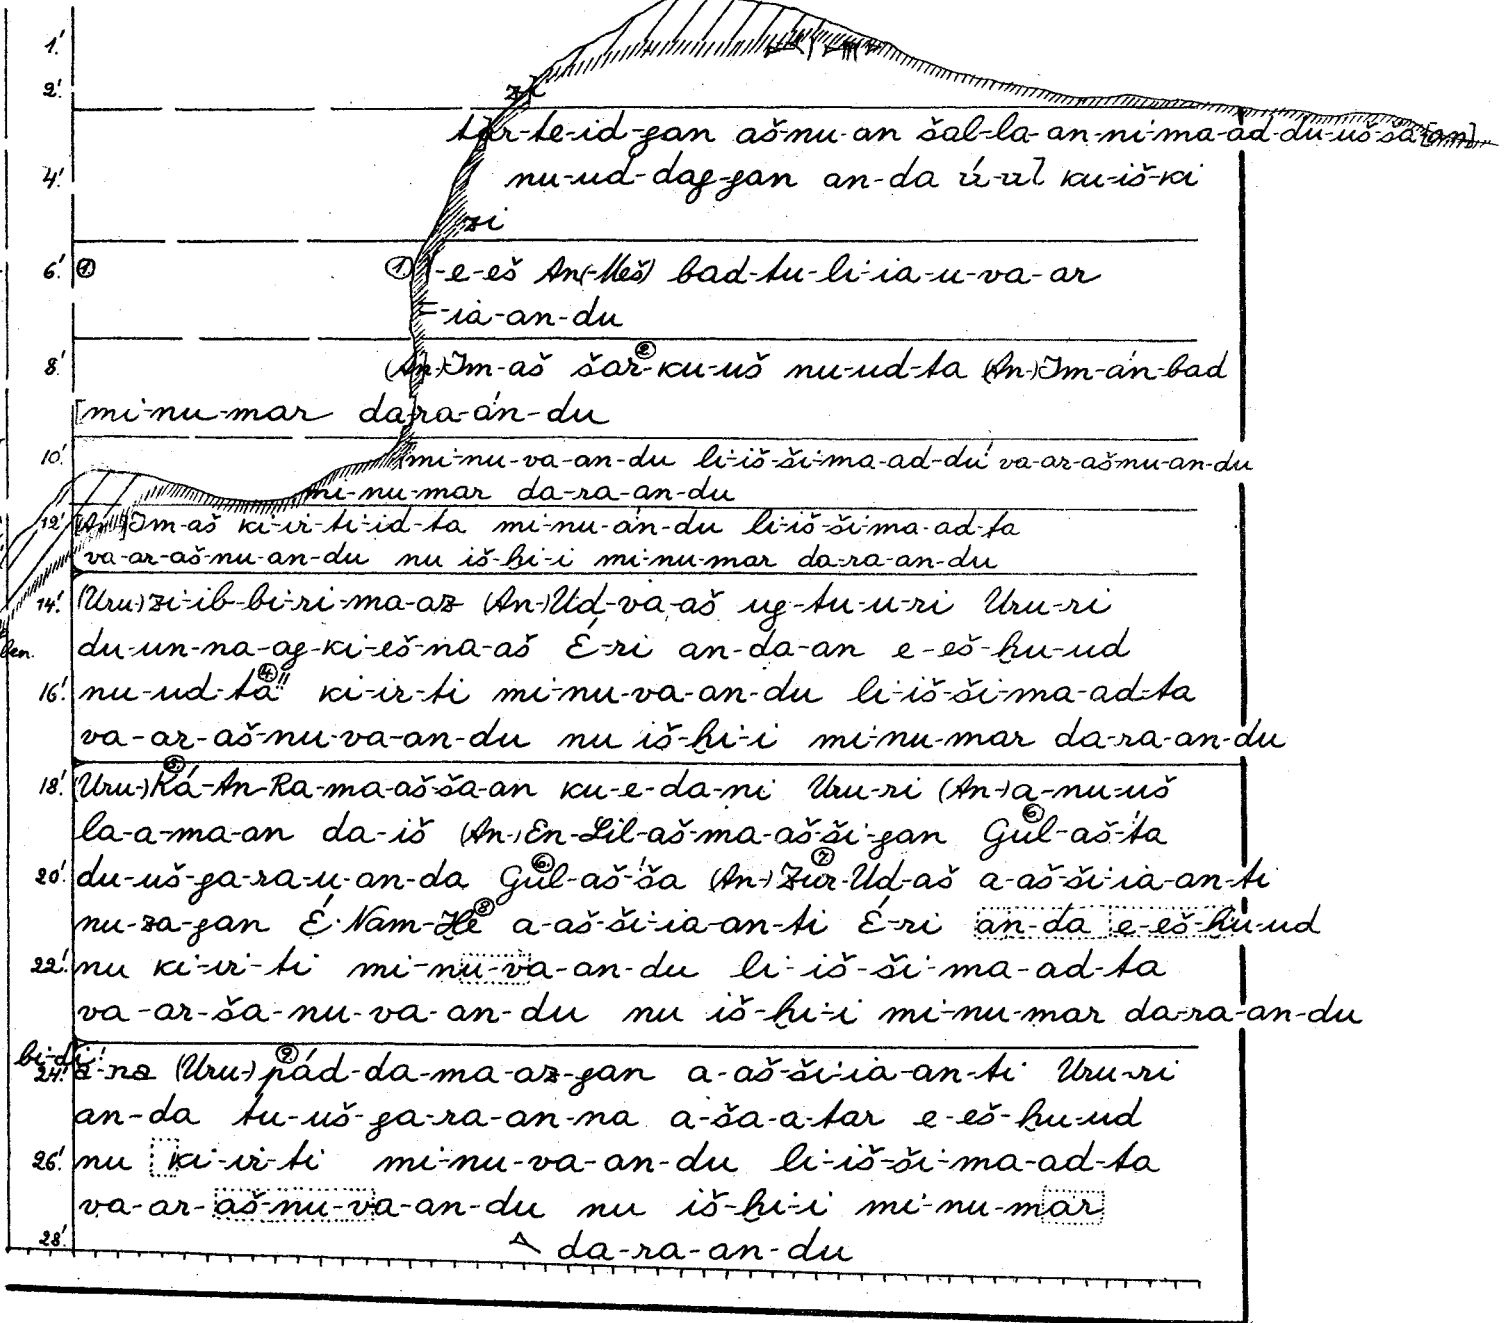 1!
2! zi
tar-te-id-gan aš-nu-an šal-la-an-ni-ma-ad-du-uš-ša[an]
4! nu-ud-dag-gan an-da ú-ul ku-iš-ki
zi
6! ① ① -e-eš An(-Meš) bad-tu-li-ia-u-va-ar
-ia-an-du
8! (An-)Im-aš šar-②ku-uš nu-ud-ta (An-)Im-án-bad
[mi-nu-mar da-ra-án-du
10! mi-nu-va-an-du li-iš-ši-ma-ad-du! va-ar-aš-nu-an-du
mi-nu-mar da-ra-an-du
12! [(An-)]Im-aš ki-ir-ti-id-ta mi-nu-án-du li-iš-ši-ma-ad-ta
va-ar-aš-nu-an-du nu iš-ḫi-i mi-nu-mar da-ra-an-du
14! (Uru-)zi-ib-bi-ri-ma-az (An-)Ud-va-aš ug-tu-u-ri Uru-ri
ben. du-un-na-ag-ki-eš-na-aš É-ri an-da-an e-eš-ḫu-ud
16! nu-ud-ta④!! ki-ir-ti mi-nu-va-an-du li-iš-ši-ma-ad-ta
va-ar-aš-nu-va-an-du nu iš-ḫi-i mi-nu-mar da-ra-an-du
18! (Uru-)Ká⑤-An-Ra-ma-aš-ša-an ku-e-da-ni Uru-ri (An-)a-nu-uš
la-a-ma-an da-iš (An-)En-Lil-aš-ma-aš-ši-gan Gul⑥-aš-!ta
20! du-uš-ga-ra-u-an-da Gul⑥-aš-!ša (An-)Zur⑦-Ud-aš a-aš-ši-ia-an-ti
nu-za-gan É-Nam-Ḫé⑧ a-aš-ši-ia-an-ti É-ri an-da e-eš-ḫu-ud
22! nu ki-ir-ti mi-nu-va-an-du li-iš-ši-ma-ad-ta
va-ar-ša-nu-va-an-du nu iš-ḫi-i mi-nu-mar da-ra-an-du
bi-di!
24! a-na (Uru-)pád⑨-da-ma-az-gan a-aš-ši-ia-an-ti Uru-ri
an-da tu-uš-ga-ra-an-na a-ša-a-tar e-eš-ḫu-ud
26! nu ki-ir-ti mi-nu-va-an-du li-iš-ši-ma-ad-ta
va-ar-aš-nu-va-an-du nu iš-ḫi-i mi-nu-mar
28! da-ra-an-du